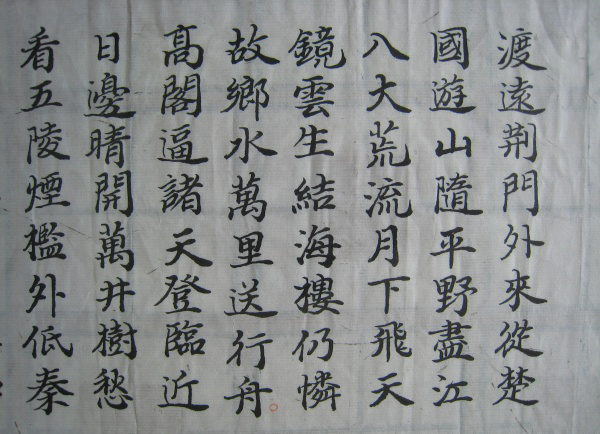 渡遠荊門外來從楚
國遊山隨平野盡江
入大荒流月下飛天
鏡雲生結海樓仍憐
故鄉水萬里送行舟
高閣逼諸天登臨近
日邊晴開萬井樹愁
看五陵煙檻外低秦